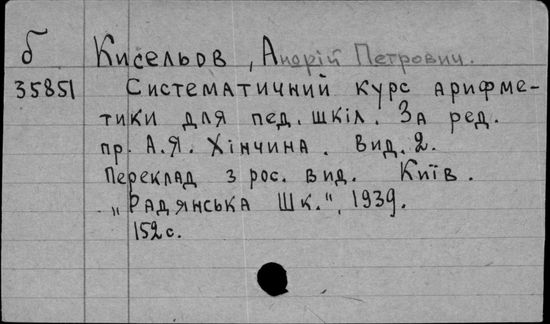 б Кисельов, Андрій Петрович.
35851 Систематичний курс арифме-
тики для пед. шкіл. За ред.
пр. А.Я. Хінчина. Вид. 2.
Переклад з рос. вид. Київ.
„Радянська Шк.", 1939.
152 с.